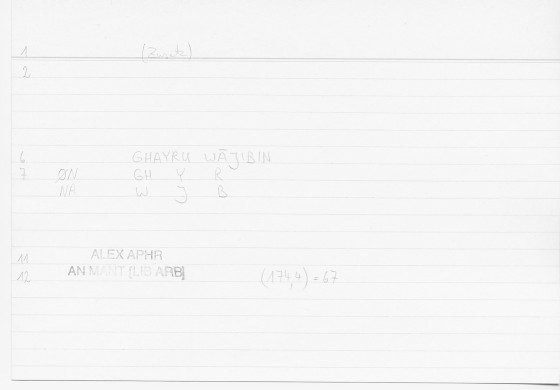 1 (Zusatz)
2
6 GHAYRU WĀJIBIN
7 ØN GH Y R
NA W J B
11 ALEX APHR
12 AN MANT [LIB ARB] (174,4) = 67